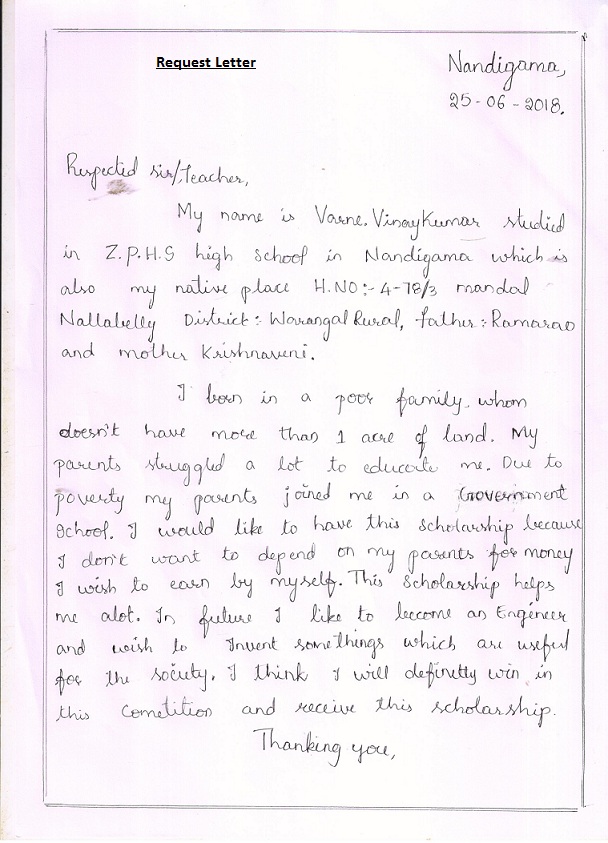 Request Letter
Nandigama,
25-06-2018.
Respected sir/Teacher,
My name is Varne.VinayKumar studied
in Z.P.H.S high school in Nandigama which is
also my native place H.NO:- 4-78/3 mandal
Nallabelly District: Warangal Rural, father: Ramarao
and mother Krishnaveni.
I born in a poor family, whom
doesn't have more than 1 acre of land. My
parents struggled a lot to educate me. Due to
poverty my parents joined me in a Government
School. I would like to have this scholarship because
I don't want to depend on my parents for money
I wish to earn by myself. This Scholarship helps
me alot. In future I like to become an Engeneer
and wish to Invent somethings which are useful
for the society. I think I will definetly win in
this Cometition and receive this scholarship.
Thanking you,